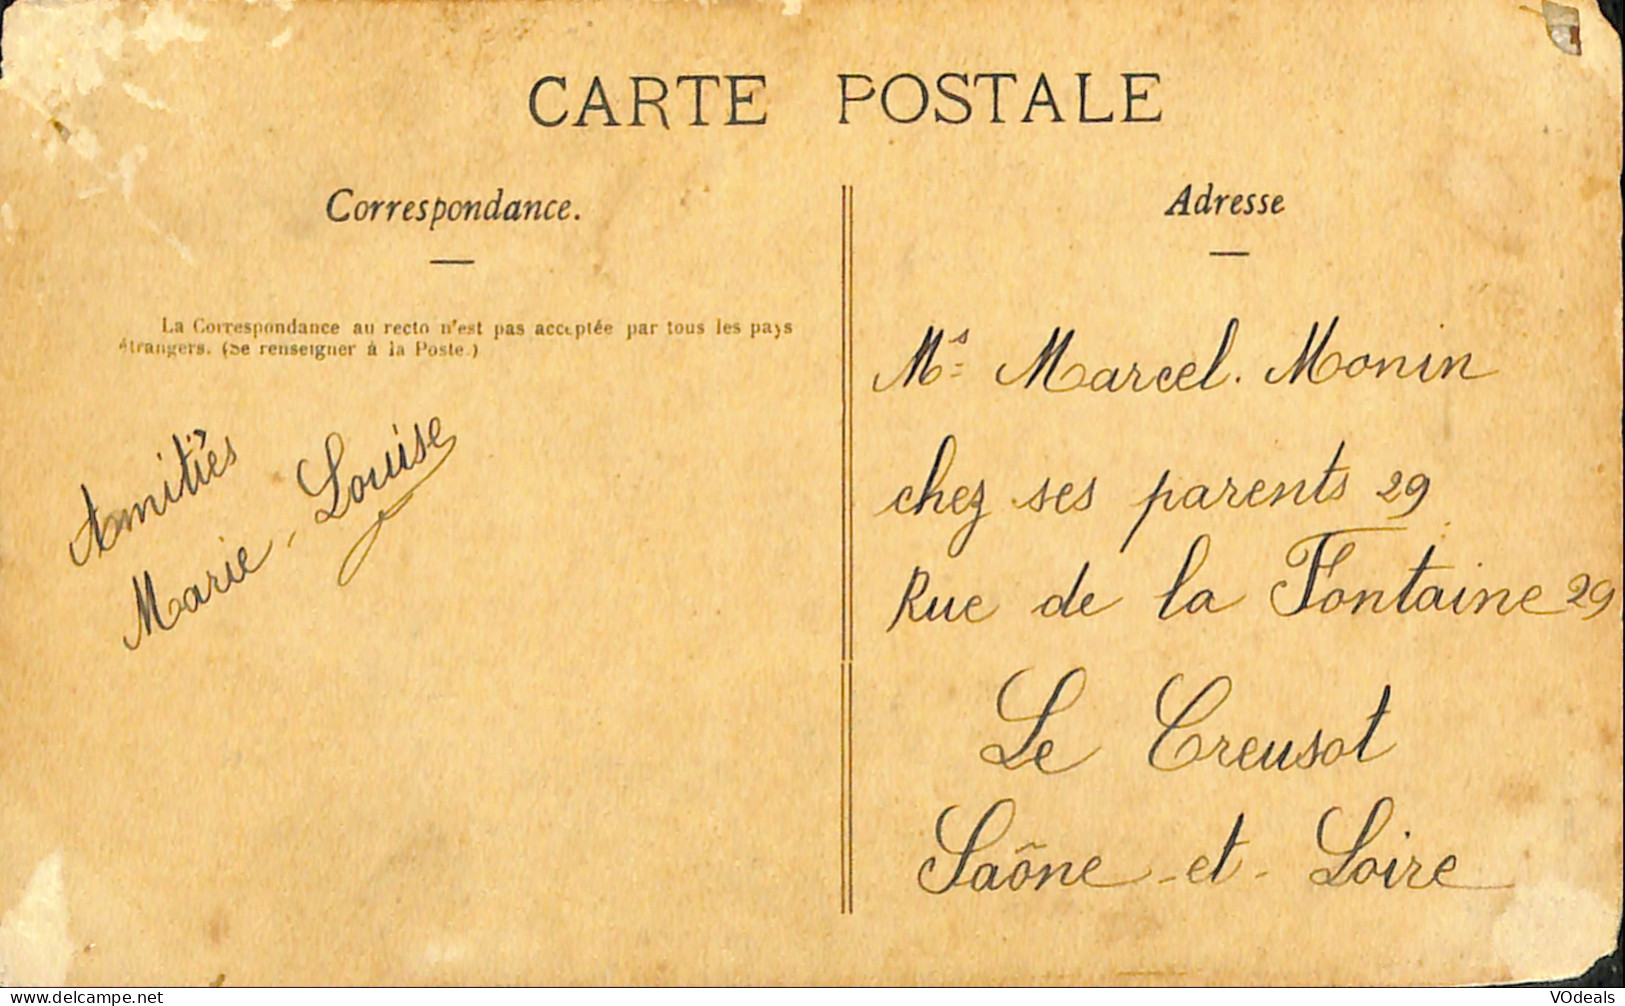 CARTE POSTALE
Correspondance.
La Correspondance au recto n'est pas acceptée par tous les pays
étrangers. (Se renseigner à la Poste.)
Amitiés
Marie-Louise
Adresse
Ms= Marcel. Monin
chez ses parents 29
Rue de la Fontaine 29
Le Creusot
Saône-et-Loire
VOdeals